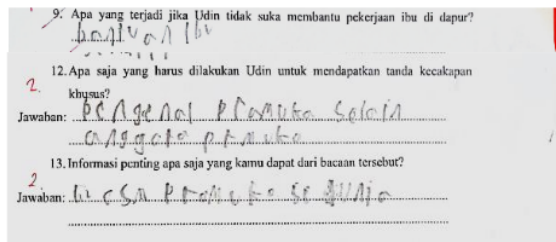 9. Apa yang terjadi jika Udin tidak suka membantu pekerjaan ibu di dapur?
bantuan ibu
12. Apa saja yang harus dilakukan Udin untuk mendapatkan tanda kecakapan
2.
khusus?
Jawaban: pengenal pramuka selain
anggota pramuka
13. Informasi penting apa saja yang kamu dapat dari bacaan tersebut?
2.
Jawaban: pramuka